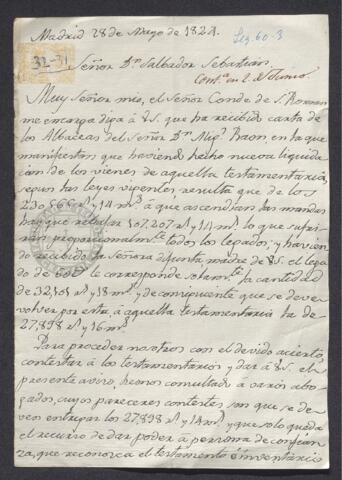 Madrid 28 de Mayo de 1824.
Leg. 60-3
32-31
Señor Dn. Salbador Sebastian.
Cont.n en 2 de Junio.
Muy Señor mio, el Señor Conde de S. Roman
me encarga diga à V.S. que ha recibido carta de
los Albaceas del Señor Dn. Mig.l Raon, en la que
manifiestan que haviendo hecho nueva liquida
cion de los vienes de aquella testamentaria,
segun las leyes vigentes resulta que de los
r.s y 14 m.s à que ascendian las mandas
hay que rebajar 107,207 r.s y 14 m.s lo que sufri-
ran proporcionalm.te todos los legados; y havien
do recibido la Señora difunta madre de V.S. el lega
do de le corresponde solam.te la cantidad
de 32,101 r.s y 18 m.s y de consiguiente que se deve
volver por esta, à aquella testamentaria la de
27,898 r.s y 16 m.s
Para proceder nosotros con el devido acierto,
contestar à los testamentarios y dar à V.S. el
presente aviso, hemos consultado à varios abo-
gados, cuyos pareceres contestes son que se de-
ven entregar los 27,898 r.s y 14 m.s, y que solo queda
el recurso de dar poder à persona de confian
za, que reconozca el testamento è inventario